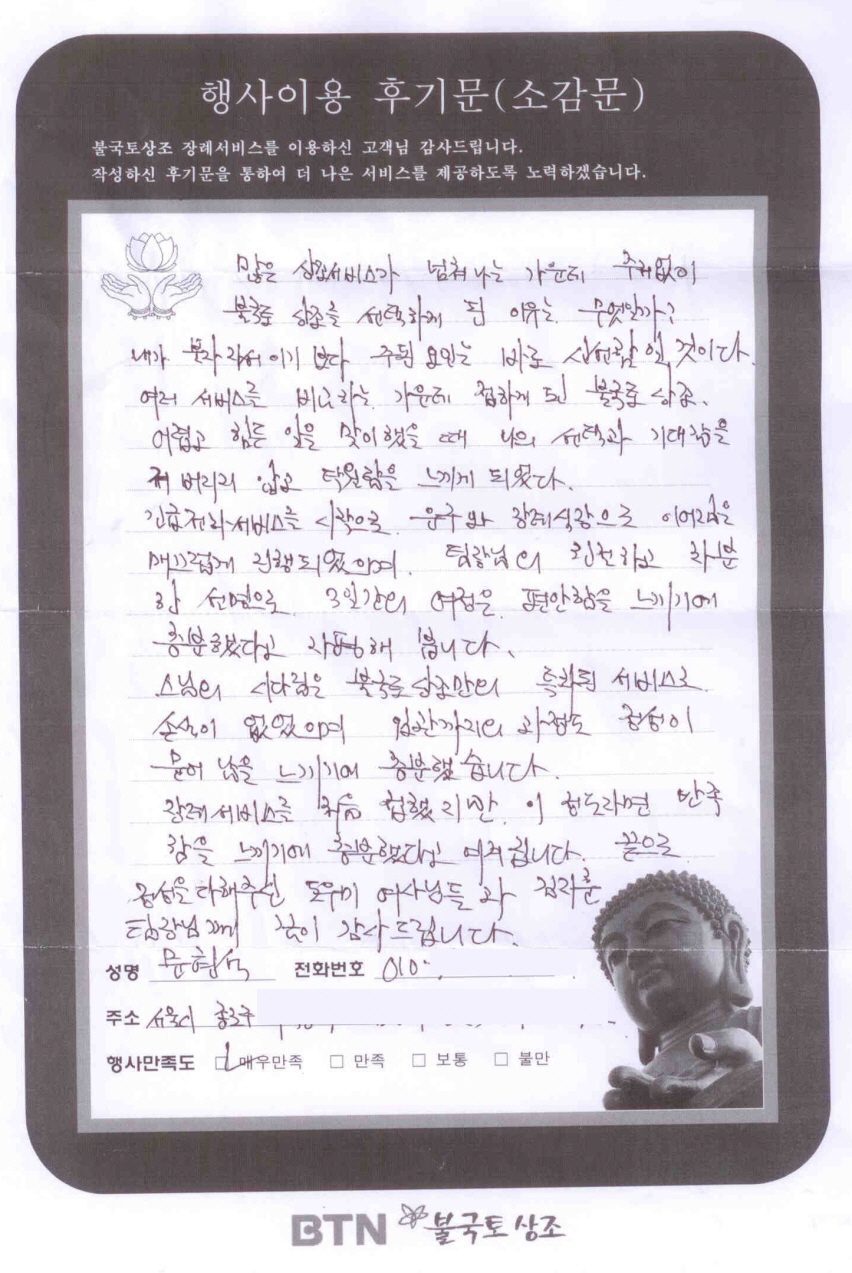 행사이용 후기문(소감문)
불국토상조 장례서비스를 이용하신 고객님 감사드립니다.
작성하신 후기문을 통하여 더 나은 서비스를 제공하도록 노력하겠습니다.
많은 상조서비스가 넘쳐나는 가운데 주저없이
불국토 상조를 선택하게 된 이유는 무엇일까?
내가 불자라서 이기 보다 주된 요인는 바로 신뢰감 일 것이다.
여러 서비스를 비교하는 가운데 접하게 된 불국토 상조.
어렵고 힘든 일을 맞이했을 때 나의 선택과 기대감을
저 버리지 않고 탁월함을 느끼게 되었다.
긴급전화서비스를 시작으로 운구와 장례식장으로 이어짐은
매끄럽게 진행되었으며, 팀장님의 친절하고 차분
한 설명으로 3일간의 여정은 편안함을 느끼기에
충분했다고 자평해 봅니다.
스님의 시다림은 불국토상조만의 특화된 서비스로
손색이 없었으며 입관까지의 과정도 정성이
묻어 남을 느끼기에 충분했습니다.
장례서비스를 처음 접했지만, 이 정도라면 만족
함을 느끼기에 충분했다고 여겨집니다. 끝으로
정성을 다해주신 도우미 여사님들 과
팀장님께 깊이 감사드립니다.
성명 문형석 전화번호 010-
주소 서울시 종로구
행사만족도 □ 매우만족 □ 만족 □ 보통 □ 불만
BTN 불국토상조